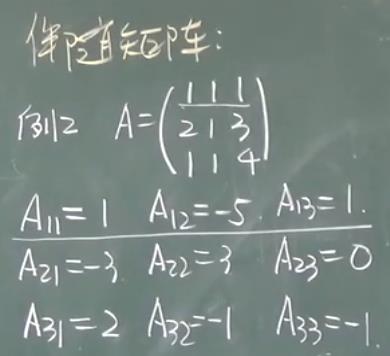 伴随矩阵:
例2 A=(1 1 1
2 1 3
1 1 4)
A₁₁=1 A₁₂=-5 A₁₃=1.
A₂₁=-3 A₂₂=3 A₂₃=0
A₃₁=2 A₃₂=-1 A₃₃=-1.